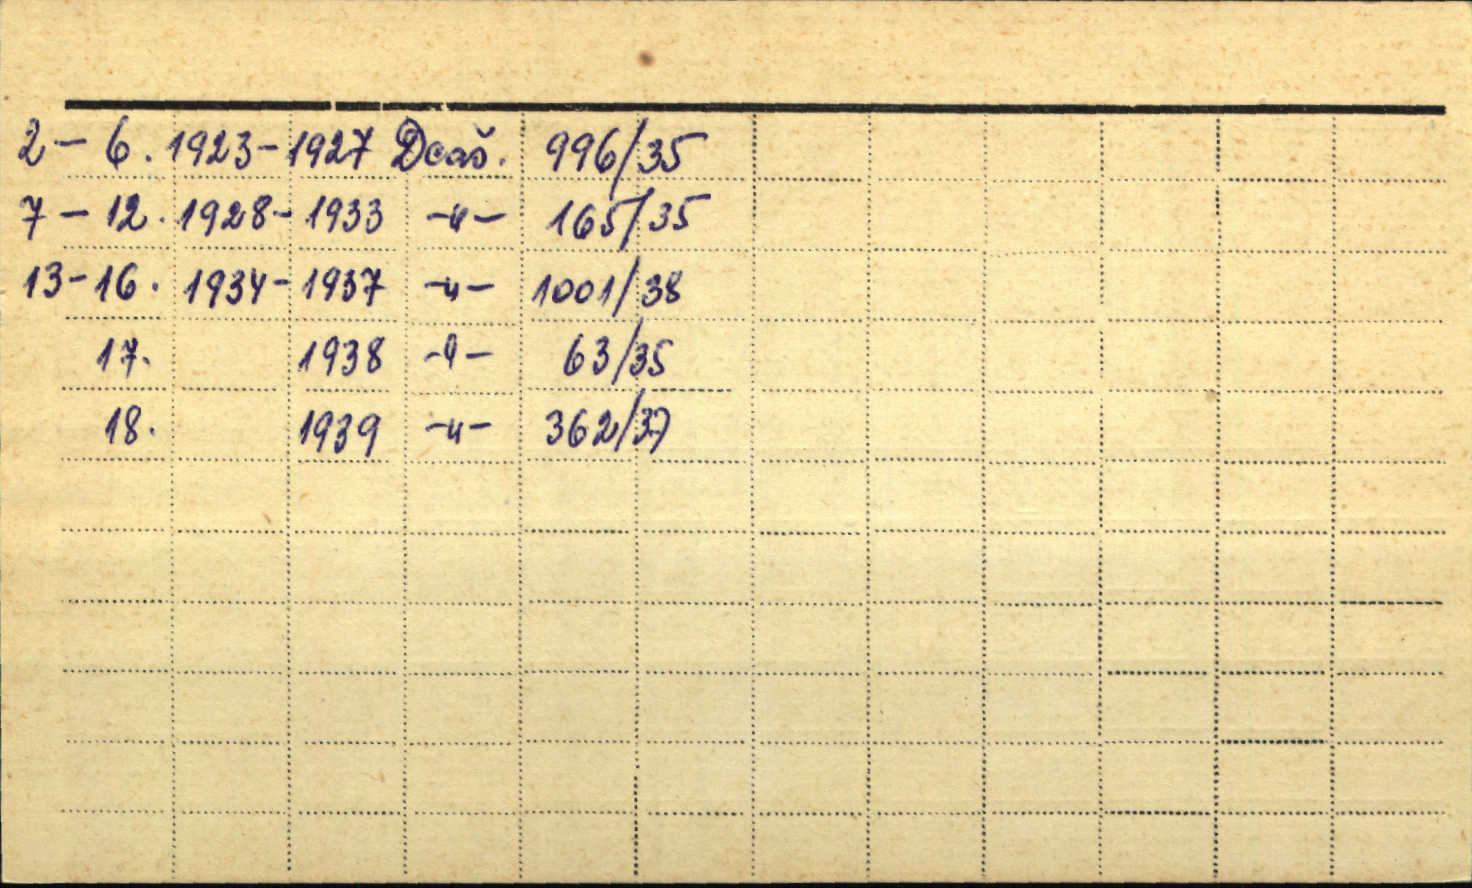 2 - 6. 1923 - 1927 Dcaš. 996/35
7 - 12. 1928 - 1933 -"- 165/35
13 - 16. 1934 - 1937 -"- 1001/38
17. 1938 -"- 63/35
18. 1939 -"- 362/37